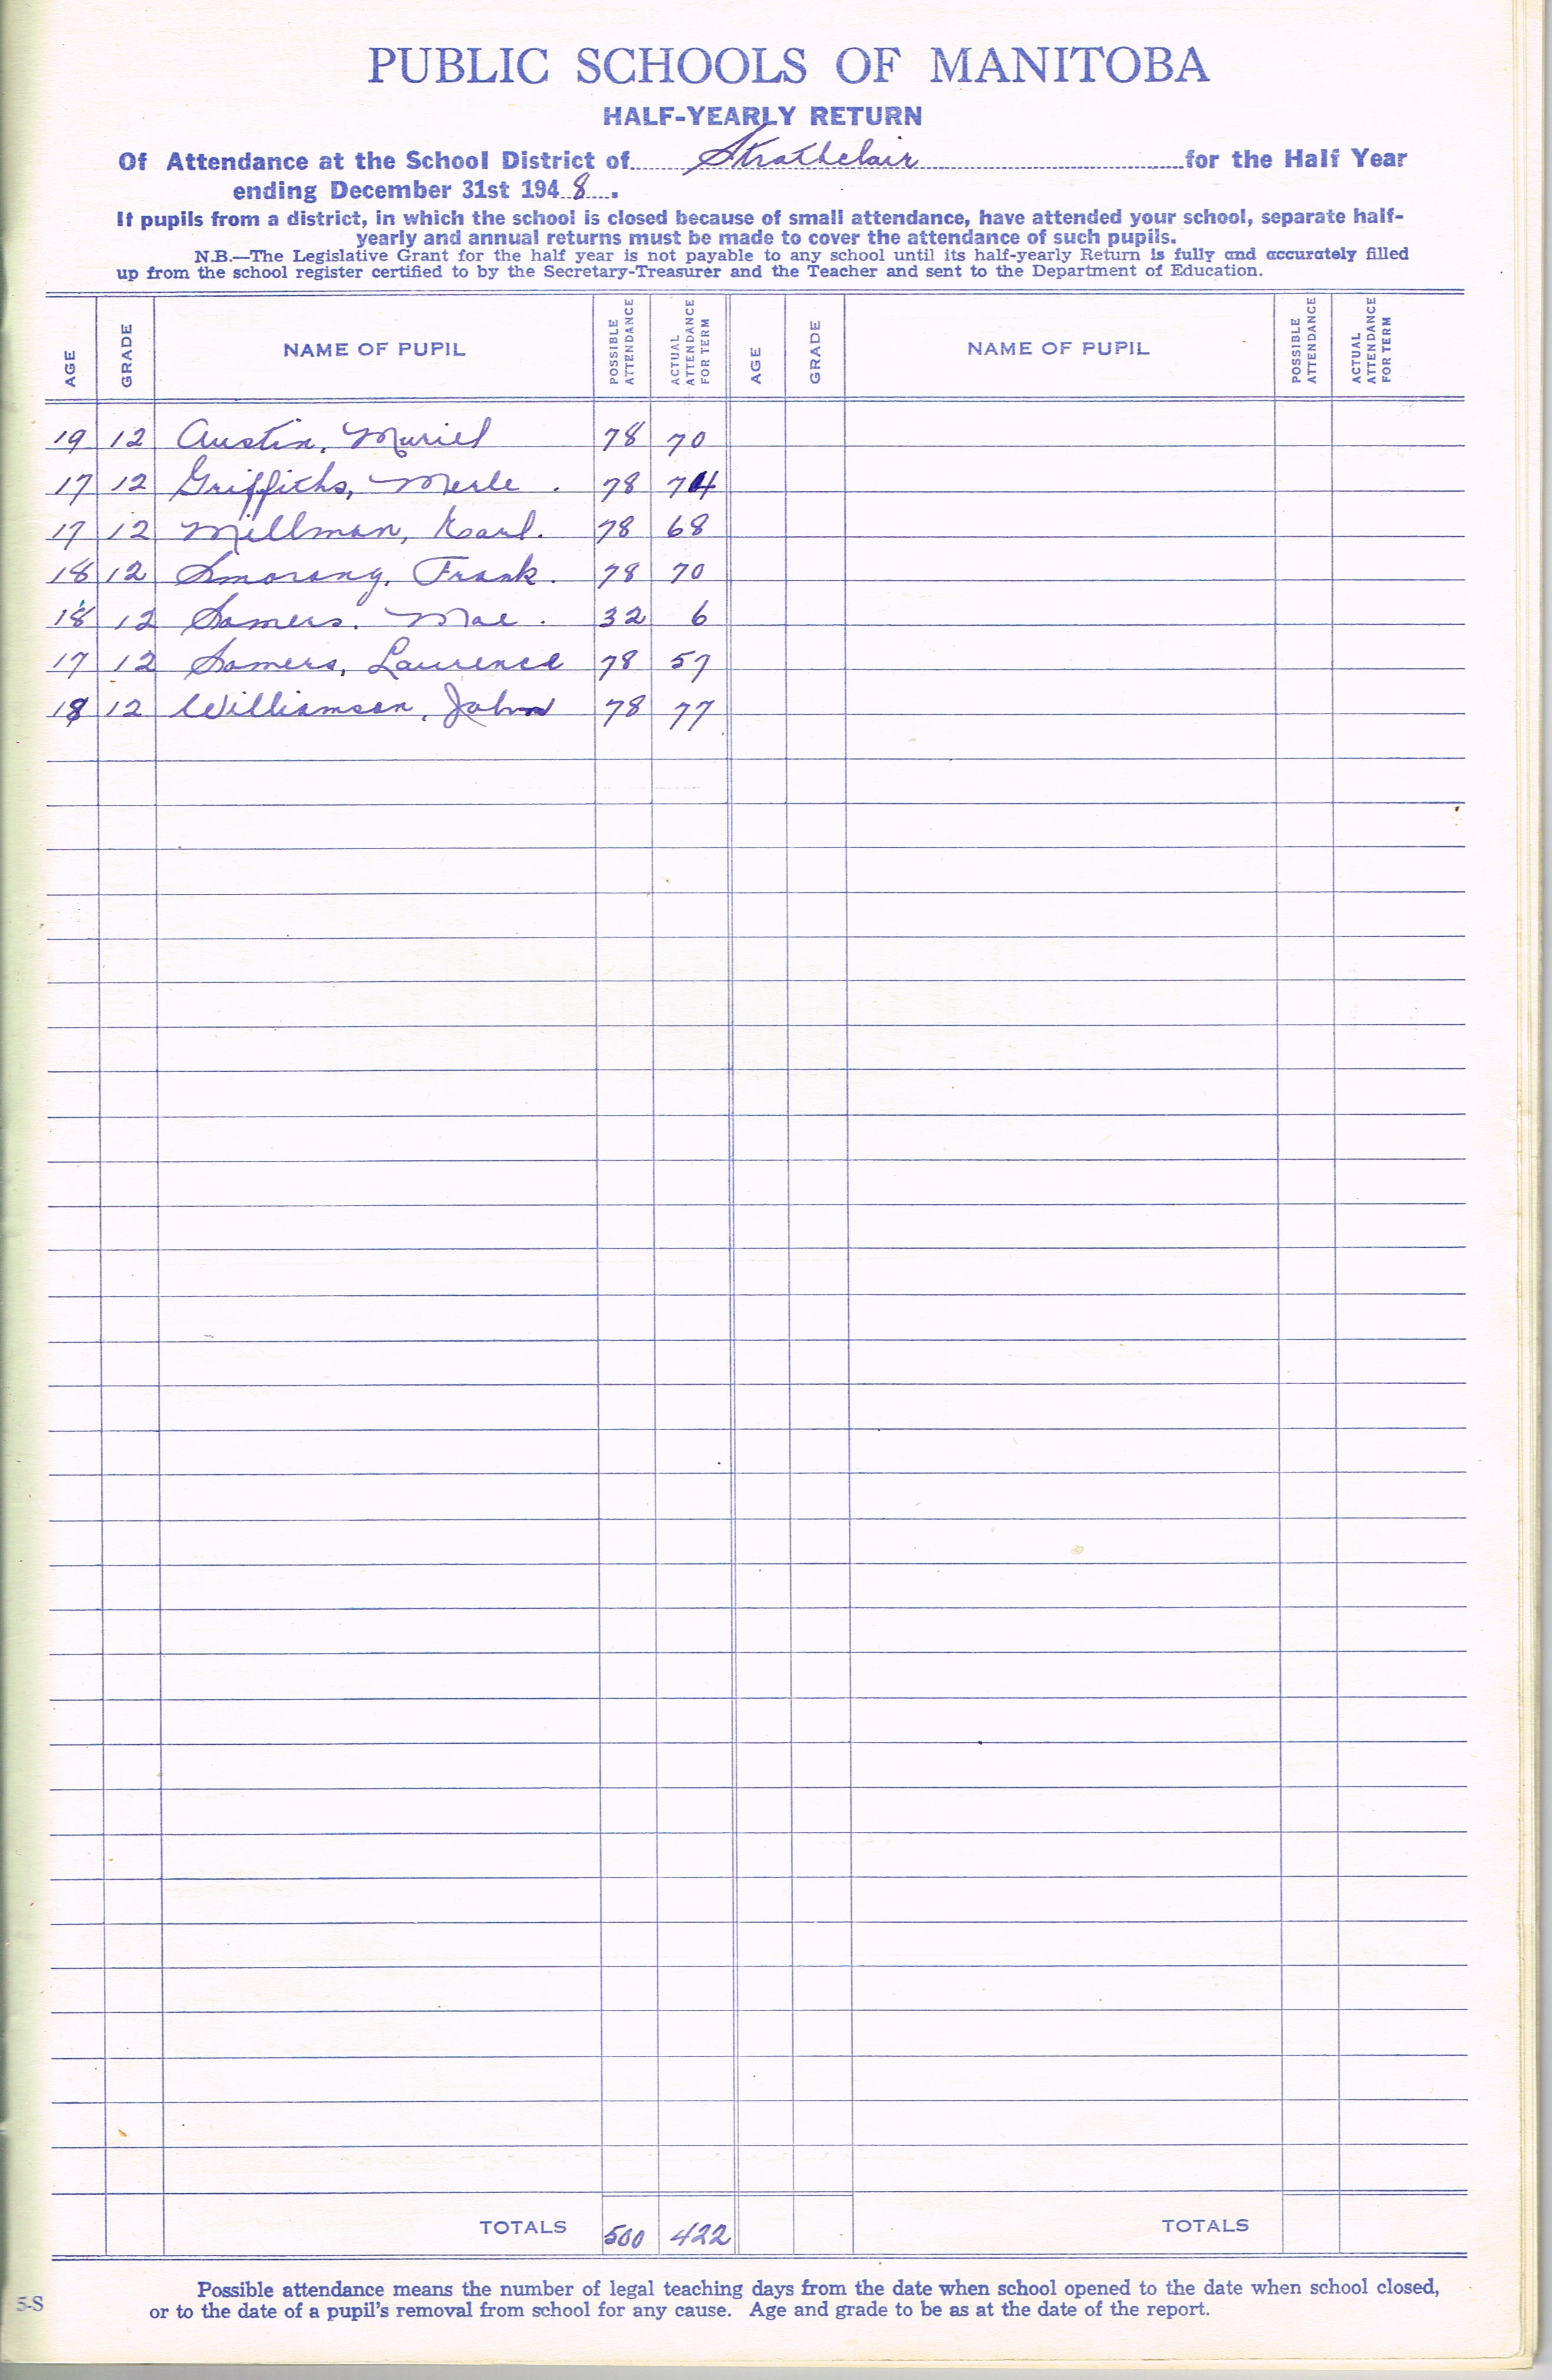 PUBLIC SCHOOLS OF MANITOBA
HALF-YEARLY RETURN
Of Attendance at the School District of Strathclair for the Half Year
ending December 31st 1948.
If pupils from a district, in which the school is closed because of small attendance, have attended your school, separate half-
yearly and annual returns must be made to cover the attendance of such pupils.
N.B.—The Legislative Grant for the half year is not payable to any school until its half-yearly Return is fully and accurately filled
up from the school register certified to by the Secretary-Treasurer and the Teacher and sent to the Department of Education.
AGE GRADE NAME OF PUPIL POSSIBLE ATTENDANCE ACTUAL ATTENDANCE FOR TERM AGE GRADE NAME OF PUPIL POSSIBLE ATTENDANCE ACTUAL ATTENDANCE FOR TERM
19 12 Austin, Muriel 78 70
17 12 Griffiths, Merle. 78 74
17 12 Millman, Earl. 78 68
18 12 Smorang, Frank. 78 70
18 12 Somers. Mae. 32 6
17 12 Somers, Laurence 78 57
18 12 Williamson, John 78 77
TOTALS 500 422 TOTALS
Possible attendance means the number of legal teaching days from the date when school opened to the date when school closed,
5-S or to the date of a pupil's removal from school for any cause. Age and grade to be as at the date of the report.